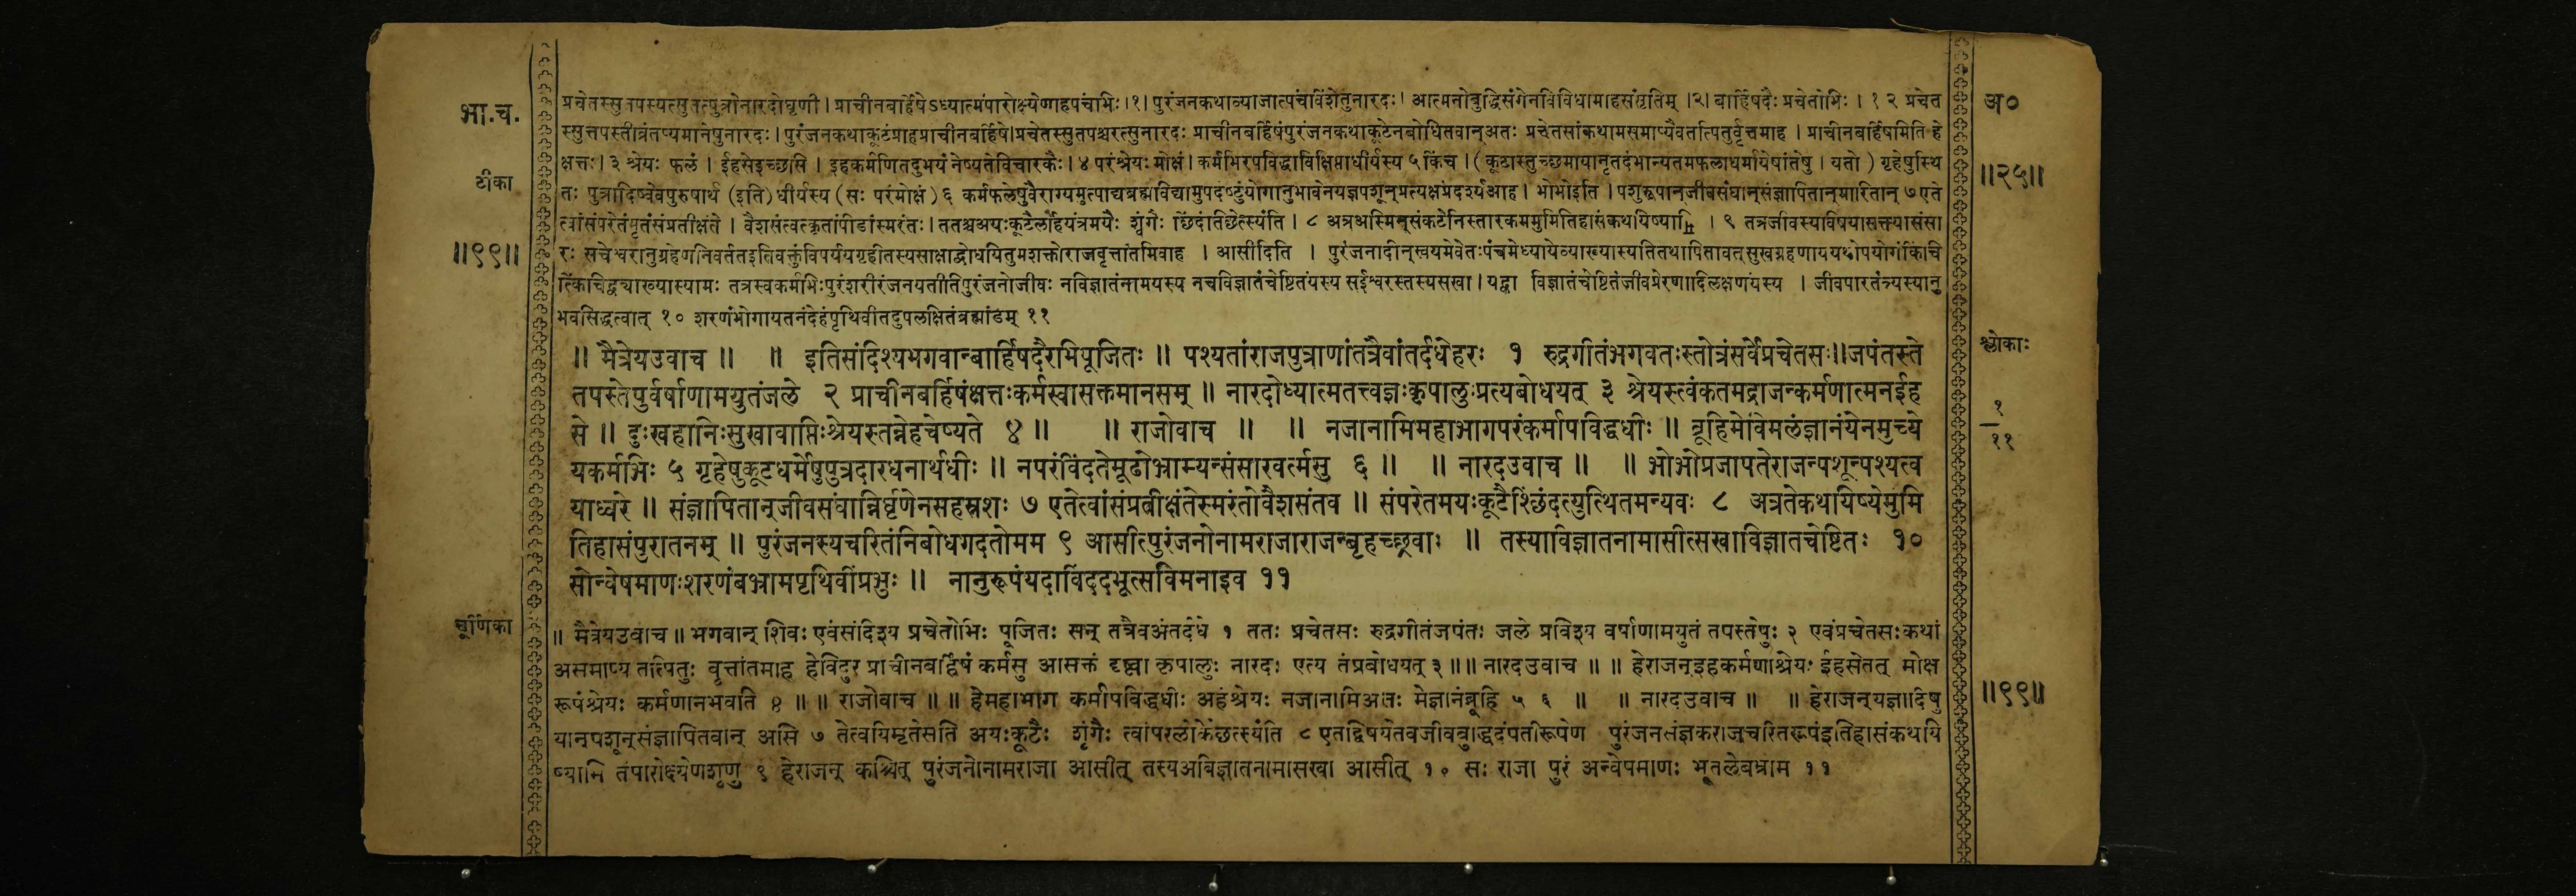 भा.च.
टीका
॥९९॥
प्रचेतस्सु तपस्यत्सु तत्पुत्रोनारदोघृणी । प्राचीनबर्हिषेऽध्यात्मंपारोक्ष्येणाहपंचभिः ।१। पुरंजनकथाव्याजात्पंचविंशेतुनारदः । आत्मनोबुद्धिसंगेनविविधामाहसंसृतिम् ।२। बार्हिषदैः प्रचेतोभिः । १ २ प्रचेत
स्सुतपस्तीव्रंतप्यमानेषुनारदः । पुरंजनकथाकूटंप्राहप्राचीनबर्हिषे।प्रचेतस्सुतपश्चरत्सुनारदः प्राचीनबर्हिषंपुरंजनकथाकूटेनबोधितवान्अतः प्रचेतसांकथामसमाप्यैवतत्पितुर्वृत्तमाह । प्राचीनबर्हिषमिति हे
क्षत्तः । ३ श्रेयः फलं । ईहसेइच्छसि । इहकर्मणितदुभयं नेष्यतेविचारकैः । ४ परंश्रेयः मोक्षं । कर्मभिरपविद्धाविक्षिप्ताधीर्यस्य ५ किंच । (कूटास्तुच्छमायानृतदंभान्यतमफलाधर्मायेषांतेषु । यतो ) गृहेषुस्थि
तः पुत्रादिष्वेवपुरुषार्थ (इति) धीर्यस्य (सः परंमोक्षं) ६ कर्मफलेषुवैराग्यमुत्पाद्यब्रह्मविद्यामुपदेष्टुंयोगानुभावेनयज्ञपशून्प्रत्यक्षंप्रदर्श्यआह । भोभोइति । पशुरूपान्जीवसंघान्संज्ञापितान्मारितान् ७ एते
त्वांसंपरेतंमृतंसंप्रतीक्षंते । वैशसंत्वत्कृतांपीडांस्मरंतः । ततश्चअयःकूटैर्लोहयंत्रमयैः शृंगैः छिंदंतिछेत्स्यंति । ८ अत्रअस्मिन्संकटेनिस्तारकममुमितिहासंकथयिष्यामि । ९ तत्रजीवस्यविषयासक्त्यासंसा
रः सचेश्वरानुग्रहेणनिवर्ततइतिवक्तुंविपर्ययगृहीतस्यसाक्षाद्बोधयितुमशक्तोराजवृत्तांतमिवाह । आसीदिति । पुरंजनादीन्स्वयमेवेतःपंचमेध्यायेव्याख्यास्यतितथापितावत्सुखग्रहणाययथोपयोगंकिंचि
त्किंचिद्व्याख्यास्यामः तत्रस्वकर्मभिःपुरंशरीरंजनयतीतिपुरंजनोजीवः नविज्ञातंनामयस्य नचविज्ञातंचेष्टितंयस्य सईश्वरस्तस्यसखा । यद्वा विज्ञातंचेष्टितंजीवप्रेरणादिलक्षणंयस्य । जीवपारतंत्र्यस्यानु
भवसिद्धत्वात् १० शरणंभोगायतनंदेहंपृथिवीतदुपलक्षितंब्रह्मांडम् ११
॥ मैत्रेयउवाच ॥ ॥ इतिसंदिश्यभगवान्बार्हिषदैरभिपूजितः ॥ पश्यतांराजपुत्राणांतत्रैवांतर्दधेहरः १ रुद्रगीतंभगवतःस्तोत्रंसर्वेप्रचेतसः॥जपंतस्ते
तपस्तेपुर्वर्षाणामयुतंजले २ प्राचीनबर्हिषंक्षत्तःकर्मस्वासक्तमानसम् ॥ नारदोध्यात्मतत्त्वज्ञःकृपालुःप्रत्यबोधयत् ३ श्रेयस्त्वंकतमद्राजन्कर्मणात्मनईह
से ॥ दुःखहानिःसुखावाप्तिःश्रेयस्तन्नेहचेष्यते ४ ॥ ॥ राजोवाच ॥ ॥ नजानामिमहाभागपरंकर्मापविद्धधीः ॥ ब्रूहिमेविमलंज्ञानंयेनमुच्ये
यकर्मभिः ५ गृहेषुकूटधर्मेषुपुत्रदारधनार्थधीः ॥ नपरंविंदतेमूढोभ्राम्यन्संसारवर्त्मसु ६ ॥ ॥ नारदउवाच ॥ ॥ भोभोप्रजापतेराजन्पशून्पश्यत्व
याध्वरे ॥ संज्ञापितान्जीवसंघान्निर्घृणेनसहस्रशः ७ एतेत्वांसंप्रतीक्षंतेस्मरंतोवैशसंतव ॥ संपरेतमयःकूटैश्छिंदंत्युत्थितमन्यवः ८ अत्रतेकथयिष्येमुमि
तिहासंपुरातनम् ॥ पुरंजनस्यचरितंनिबोधगदतोमम ९ आसीत्पुरंजनोनामराजाराजन्बृहच्छ्रवाः ॥ तस्याविज्ञातनामासीत्सखाविज्ञातचेष्टितः १०
सोन्वेषमाणःशरणंबभ्रामपृथिवींप्रभुः ॥ नानुरूपंयदाविंददभूत्सविमनाइव ११
चूर्णिका
॥ मैत्रेयउवाच ॥ भगवान् शिवः एवंसंदिश्य प्रचेतोभिः पूजितः सन् तत्रैवअंतर्दधे १ ततः प्रचेतसः रुद्रगीतंजपंतः जले प्रविश्य वर्षाणामयुतं तपस्तेपुः २ एवंप्रचेतसःकथां
असमाप्य तत्पितुः वृत्तांतमाह हेविदुर प्राचीनबर्हिषं कर्मसु आसक्तं दृष्ट्वा कृपालुः नारदः एत्य तंप्रबोधयत् ३॥॥ नारदउवाच ॥ ॥ हेराजन्इहकर्मणाश्रेयः ईहसेतत् मोक्ष
रूपंश्रेयः कर्मणानभवति ४ ॥ ॥ राजोवाच ॥ ॥ हेमहाभाग कर्मापविद्धधीः अहंश्रेयः नजानामिअतः मेज्ञानंब्रूहि ५ ६ ॥ ॥ नारदउवाच ॥ ॥ हेराजन्यज्ञादिषु
यान्पशून्संज्ञापितवान् असि ७ तेत्वयिमृतेसति अयःकूटैः शृंगैः त्वांपरलोकेछेत्स्यंति ८ एतद्विषयेतवजीवबुद्धिदंपतीरूपेण पुरंजनसंज्ञकराजचरितरूपंइतिहासंकथयि
ष्यामि तंपारोक्ष्येणशृणु ९ हेराजन् कश्चित् पुरंजनोनामराजा आसीत् तस्यअविज्ञातनामासखा आसीत् १० सः राजा पुरं अन्वेषमाणः भूतलेबभ्राम ११
अ०
॥२५॥
श्लोकाः
१
११
॥९९॥